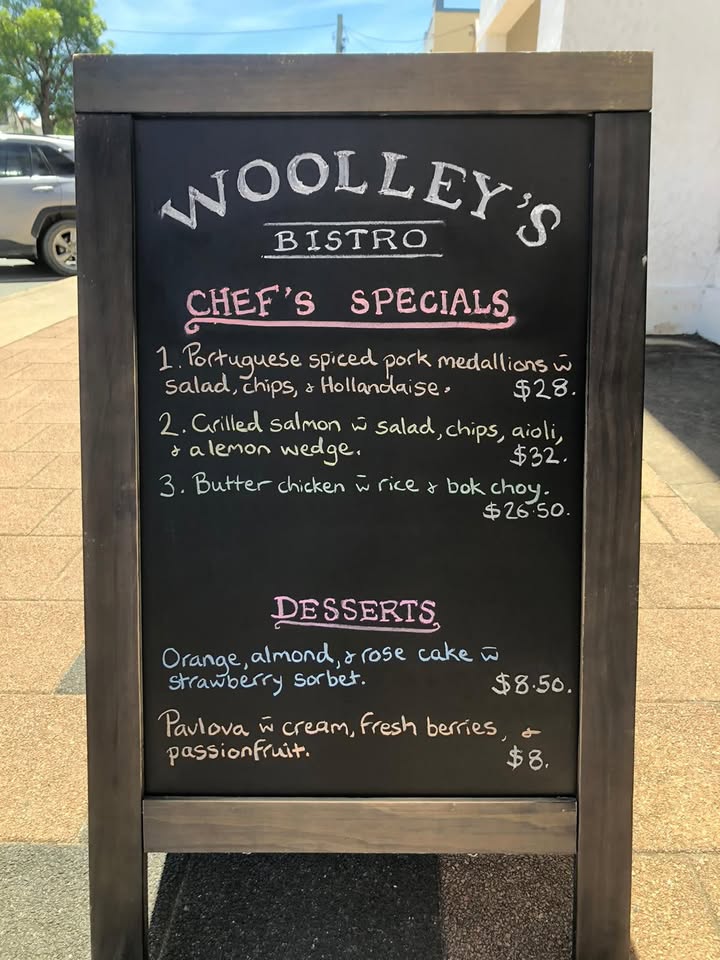 WOOLLEY'S
BISTRO
CHEF'S SPECIALS
1. Portuguese spiced pork medallions w̄
salad, chips, & Hollandaise. $28.
2. Grilled salmon w̄ salad, chips, aioli,
& a lemon wedge. $32.
3. Butter chicken w̄ rice & bok choy.
$26.50.
DESSERTS
Orange, almond, & rose cake w̄
strawberry sorbet. $8.50.
Pavlova w̄ cream, fresh berries, &
passionfruit. $8.